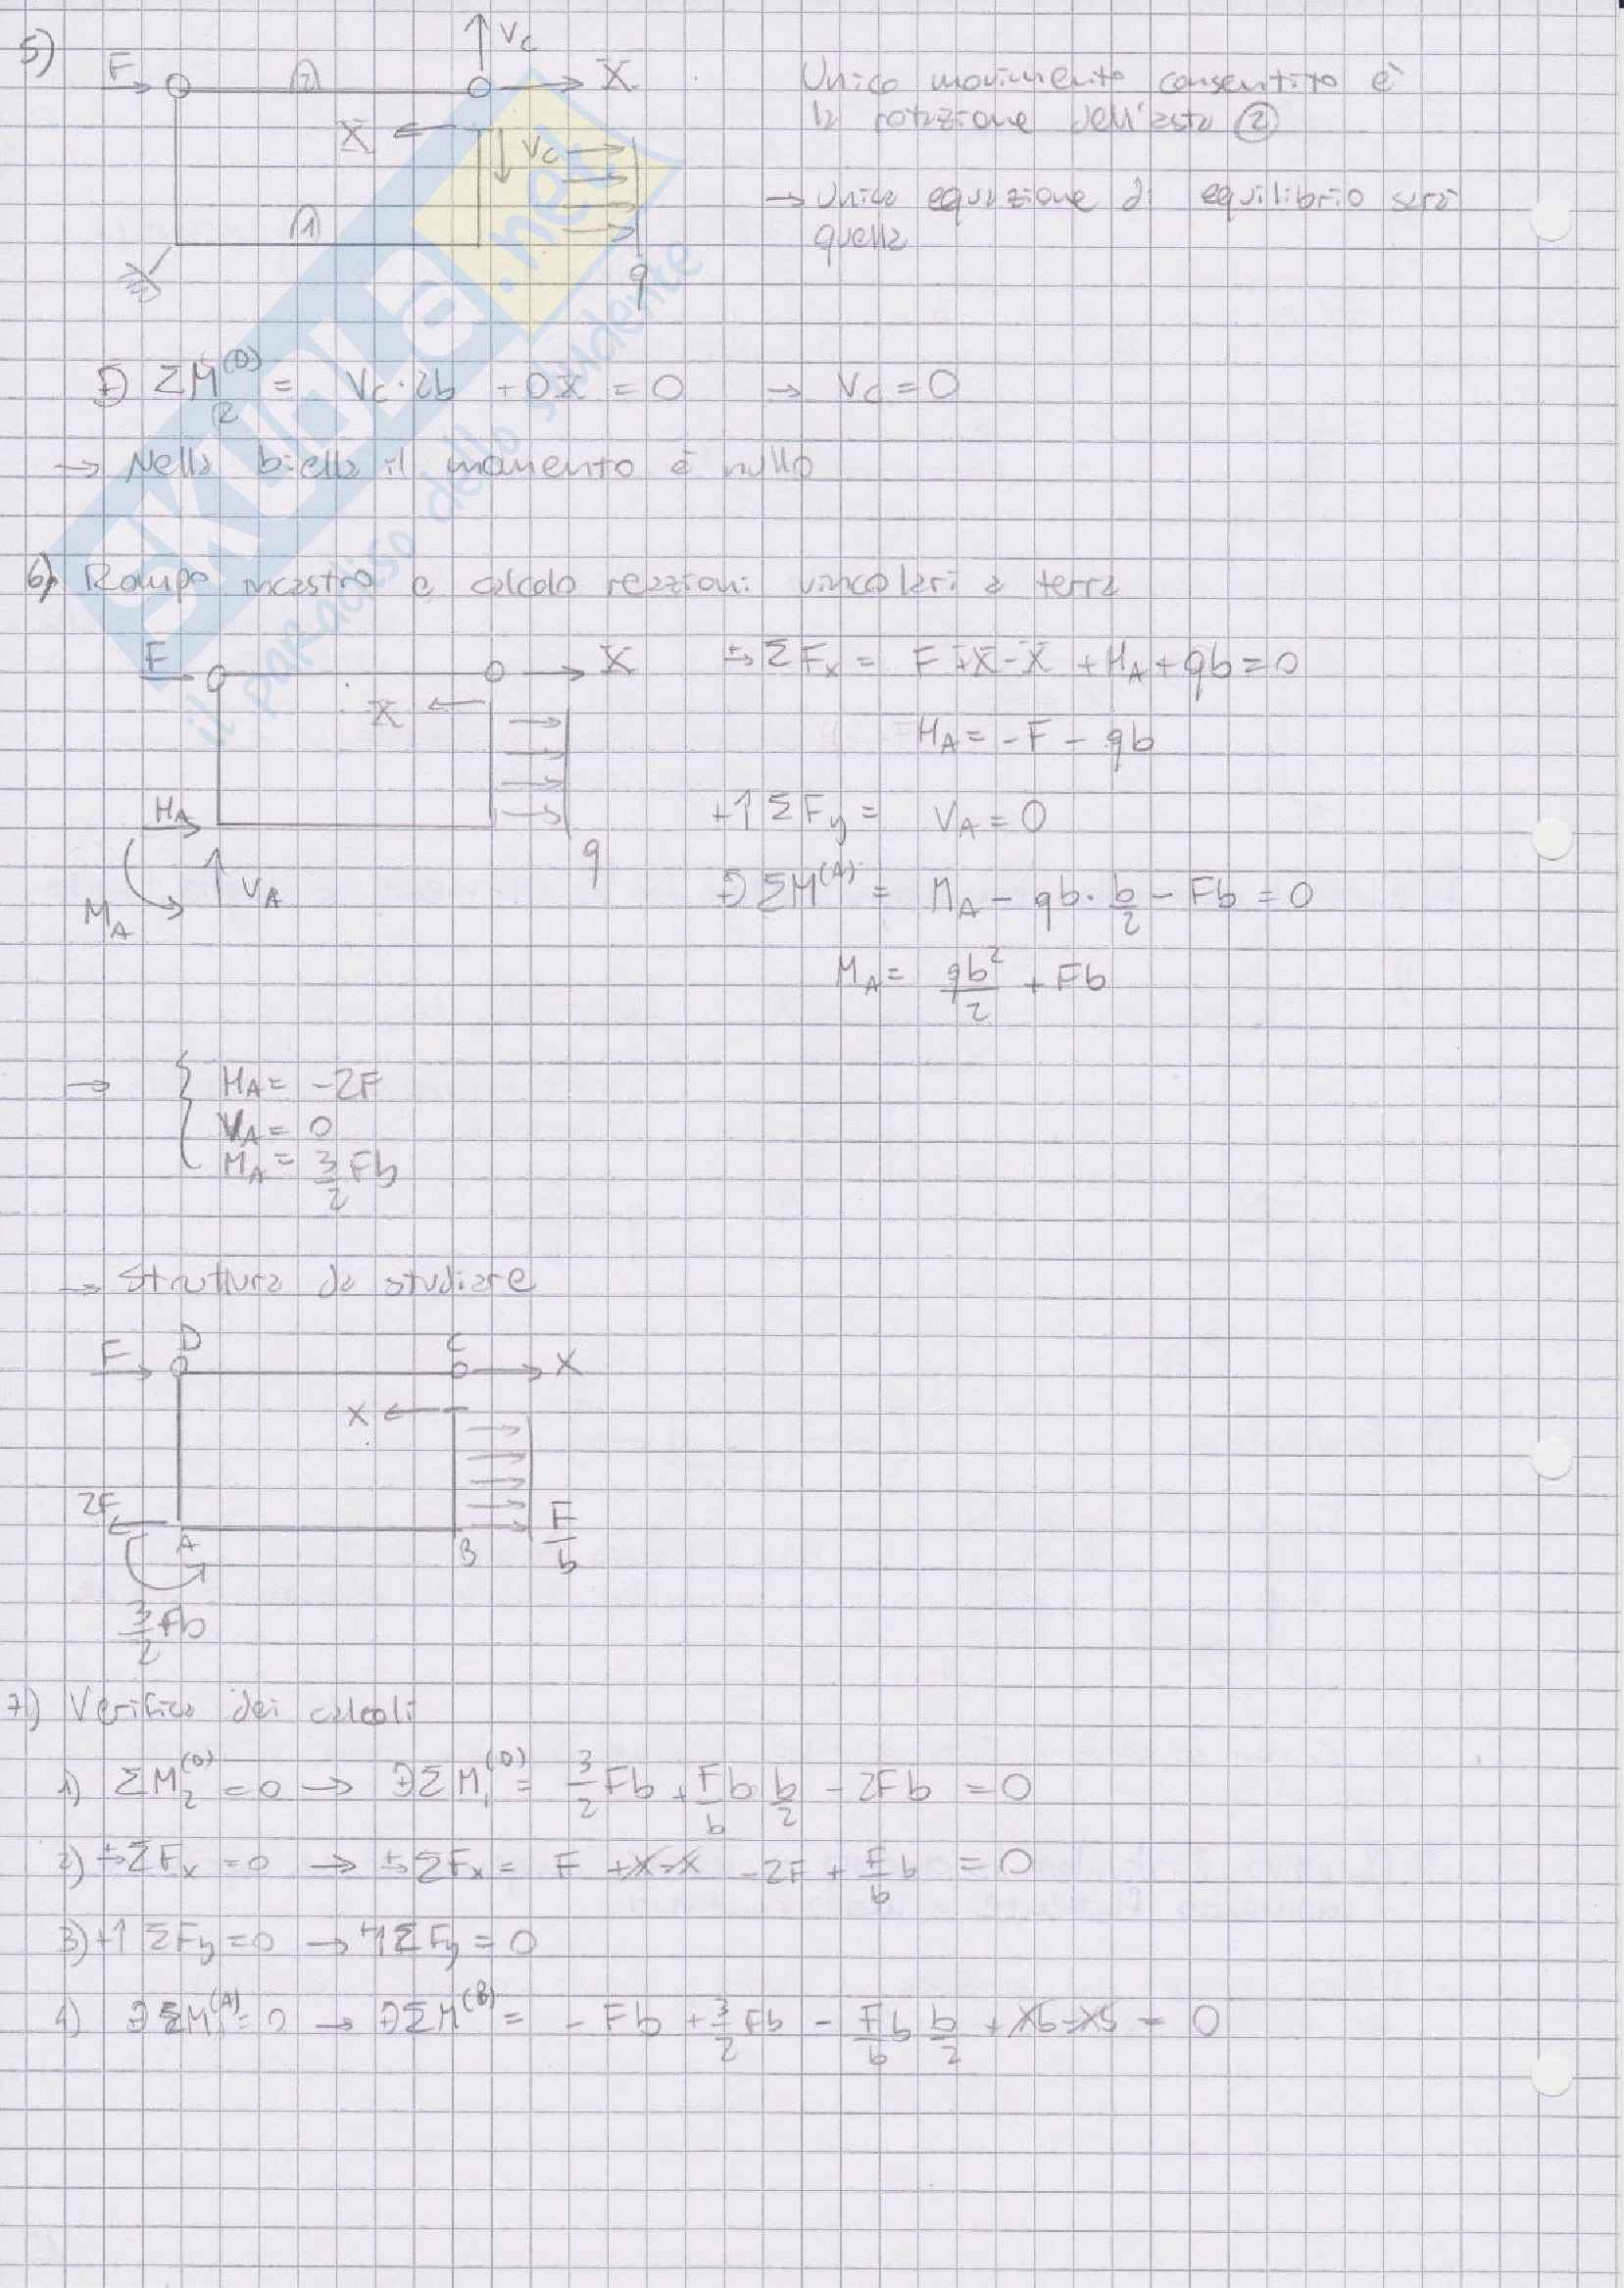 5)
F
2
V_C
X̄
X̄
V_C
1
q
Unico movimento consentito è
la rotazione dell'asta ②
→ Unica equazione di equilibrio sarà
quella
ΣM₂^(D) = V_C · 2b + 0X̄ = 0 → V_C = 0
→ Nella biella il momento è nullo
6) Rompo incastro e calcolo reazioni vincolari a terra
F
X̄
X̄
H_A
V_A
M_A
q
ΣF_x = F + X̄ - X̄ + H_A + qb = 0
H_A = -F - qb
+↑ ΣF_y = V_A = 0
ΣM^(A) = M_A - qb · b/2 - Fb = 0
M_A = qb²/2 + Fb
→ { H_A = -2F
V_A = 0
M_A = 3/2 Fb
→ Struttura da studiare
F
D
C
X
X
2F
A
B
F/b
3/2 Fb
7) Verifica dei calcoli
1) ΣM₂^(D) = 0 → ΣM₁^(D) = 3/2 Fb + F/b b b/2 - 2Fb = 0
2) ΣF_x = 0 → ΣF_x = F + X - X - 2F + F/b b = 0
3) +↑ ΣF_y = 0 → +↑ ΣF_y = 0
4) ΣM^(A) = 0 → ΣM^(B) = - Fb + 3/2 Fb - F/b b b/2 + Xb - Xb = 0
SKUOLA.net
il paradiso dello studente